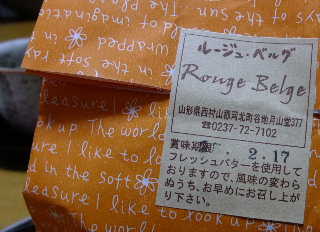 ルージュ・ベルグ
Rouge Belge
山形県西村山郡河北町谷地月山堂377
☎0237-72-7102
賞味期限 2.17
フレッシュバターを使用して
おりますので、風味の変わら
ぬうち、お早めにお召し上が
り下さい。
of the sun
wrapped
in the soft
pleasure I like
look up The world
I like to look
in the soft
pleasure! I like to look up